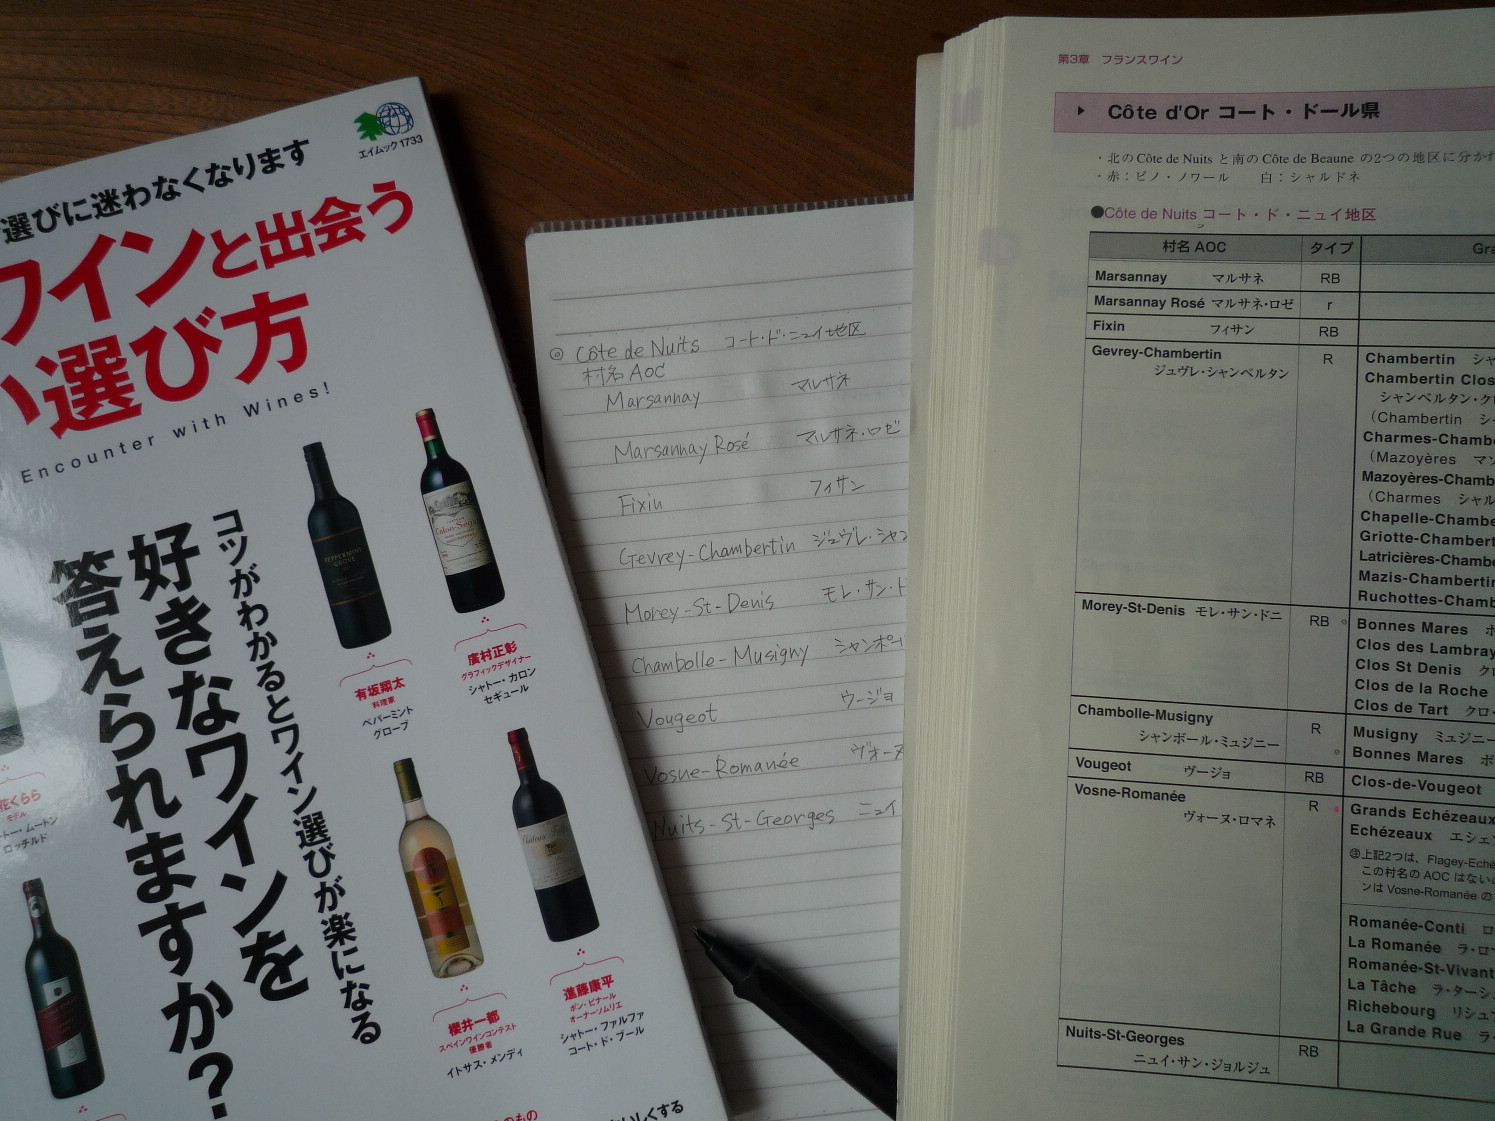 エイムック 1733
選びに迷わなくなります
ワインと出会う
い選び方
Encounter with Wines!
コツがわかるとワイン選びが楽になる
好きなワインを
答えられますか?
PEPPERMINT
GROVE
有坂翔太
料理家
ペパーミント
グローブ
廣村正彰
グラフィックデザイナー
シャトー・カロン
セギュール
花くらら
モデル
トー・ムートン
ロッチルド
櫻井一都
スペインワインコンテスト
優勝者
イトサス・メンディ
進藤康平
ボン・ピナール
オーナーソムリエ
シャトー・ファルファ
コート・ド・ブール
のもの
いしくする
◎ Côte de Nuits コート・ド・ニュイ地区
村名 AOC
Marsannay マルサネ
Marsannay Rosé マルサネ・ロゼ
Fixin フィサン
Gevrey-Chambertin ジュヴレ・シャン
Morey-St-Denis モレ・サン・ド
Chambolle-Musigny シャンボー
Vougeot ヴージョ
Vosne-Romanée ヴォーヌ
Nuits-St-Georges ニュイ
第3章 フランスワイン
Côte d'Or コート・ドール県
・北の Côte de Nuits と南の Côte de Beaune の2つの地区に分かれ
・赤：ピノ・ノワール 白：シャルドネ
●Côte de Nuits コート・ド・ニュイ地区
村名 AOC タイプ Gra
Marsannay マルサネ RB
Marsannay Rosé マルサネ・ロゼ r
Fixin フィサン RB
Gevrey-Chambertin R
ジュヴレ・シャンベルタン
Chambertin シャ
Chambertin Clos
シャンベルタン・ク
（Chambertin シ
Charmes-Chambe
（Mazoyères マ
Mazoyères-Chamb
（Charmes シャル
Chapelle-Chambe
Griotte-Chambert
Latricières-Chambe
Mazis-Chambertin
Ruchottes-Chamb
Morey-St-Denis モレ・サン・ドニ RB
Bonnes Mares ボ
Clos des Lambray
Clos St Denis ク
Clos de la Roche
Clos de Tart クロ・
Chambolle-Musigny R
シャンボール・ミュジニー
Musigny ミュジニー
Bonnes Mares ボ
Vougeot ヴージョ RB Clos-de-Vougeot
Vosne-Romanée R
ヴォーヌ・ロマネ
Grands Echézeaux
Echézeaux エシェ
㊟上記2つは、Flagey-Eché
この村名の AOC はない
ンは Vosne-Romanée の
Romanée-Conti ロ
La Romanée ラ・ロ
Romanée-St-Vivant
La Tâche ラ・ターシ
Richebourg リシュ
La Grande Rue ラ・
Nuits-St-Georges RB
ニュイ・サン・ジョルジュ